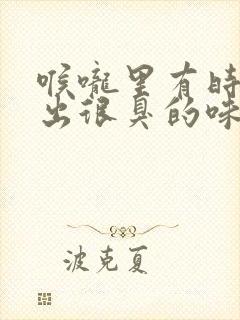 喉嚨里有時
出很臭的味
波克夏